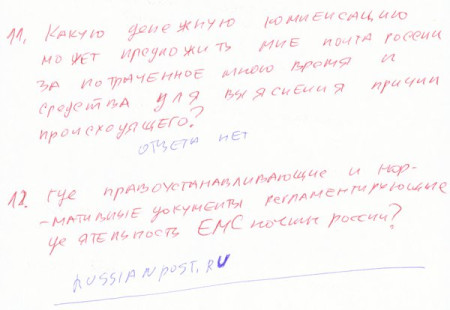 11. Какую денежную компенсацию
может предложить мне почта россии
за потраченное мною время и
средства для выяснения причин
происходящего?
ответа нет
12. где правоустанавливающие и нор-
-мативные документы регламентирующие
деятельность ЕМС почты россии?
RUSSIANPOST.RU